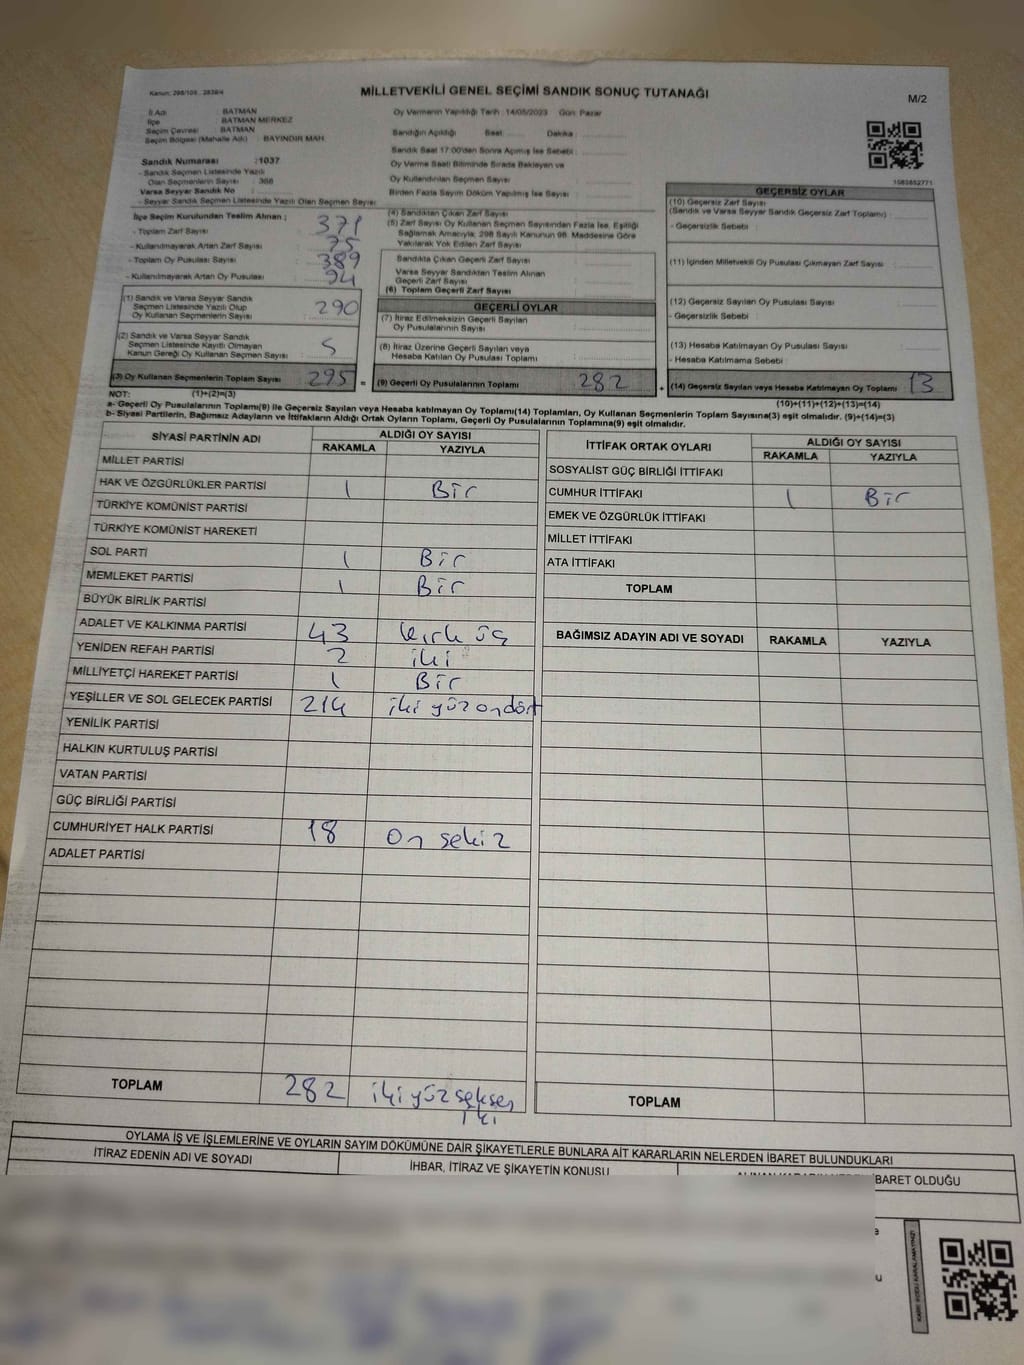 Kanun: 298/105 , 2839/4
MİLLETVEKİLİ GENEL SEÇİMİ SANDIK SONUÇ TUTANAĞI
M/2
İl Adı : BATMAN
İlçe : BATMAN MERKEZ
Seçim Çevresi : BATMAN
Seçim Bölgesi (Mahalle Adı) : BAYINDIR MAH.
Oy Vermenin Yapıldığı Tarih : 14/05/2023 Gün: Pazar
Sandığın Açıldığı Saat: Dakika :
Sandık Saat 17:00'den Sonra Açılmış İse Sebebi :
Oy Verme Saati Bitiminde Sırada Bekleyen ve
Oy Kullandırılan Seçmen Sayısı :
Birden Fazla Sayım Döküm Yapılmış İse Sayısı :
Sandık Numarası : 1037
- Sandık Seçmen Listesinde Yazılı
Olan Seçmenlerin Sayısı : 356
Varsa Seyyar Sandık No :
- Seyyar Sandık Seçmen Listesinde Yazılı Olan Seçmen Sayısı
1583852771
İlçe Seçim Kurulundan Teslim Alınan ;
- Toplam Zarf Sayısı : 371
- Kullanılmayarak Artan Zarf Sayısı : 75
- Toplam Oy Pusulası Sayısı : 389
- Kullanılmayarak Artan Oy Pusulası : 94
(1) Sandık ve Varsa Seyyar Sandık
Seçmen Listesinde Yazılı Olup
Oy Kullanan Seçmenlerin Sayısı : 290
(2) Sandık ve Varsa Seyyar Sandık
Seçmen Listesinde Kayıtlı Olmayan
Kanun Gereği Oy Kullanan Seçmen Sayısı : 5
(3) Oy Kullanan Seçmenlerin Toplam Sayısı : 295 =
(4) Sandıktan Çıkan Zarf Sayısı :
(5) Zarf Sayısı Oy Kullanan Seçmen Sayısından Fazla İse, Eşitliği
Sağlamak Amacıyla, 298 Sayılı Kanunun 98. Maddesine Göre
Yakılarak Yok Edilen Zarf Sayısı :
Sandıkta Çıkan Geçerli Zarf Sayısı :
Varsa Seyyar Sandıktan Teslim Alınan
Geçerli Zarf Sayısı :
(6) Toplam Geçerli Zarf Sayısı :
GEÇERLİ OYLAR
(7) İtiraz Edilmeksizin Geçerli Sayılan
Oy Pusulalarının Sayısı :
(8) İtiraz Üzerine Geçerli Sayılan veya
Hesaba Katılan Oy Pusulası Toplamı :
(9) Geçerli Oy Pusulalarının Toplamı : 282 +
GEÇERSİZ OYLAR
(10) Geçersiz Zarf Sayısı
(Sandık ve Varsa Seyyar Sandık Geçersiz Zarf Toplamı) :
- Geçersizlik Sebebi :
(11) İçinden Milletvekili Oy Pusulası Çıkmayan Zarf Sayısı :
(12) Geçersiz Sayılan Oy Pusulası Sayısı :
- Geçersizlik Sebebi :
(13) Hesaba Katılmayan Oy Pusulası Sayısı :
- Hesaba Katılmama Sebebi :
(14) Geçersiz Sayılan veya Hesaba Katılmayan Oy Toplamı : 13
NOT: (1)+(2)=(3)
(10)+(11)+(12)+(13)=(14)
a- Geçerli Oy Pusulalarının Toplamı(9) ile Geçersiz Sayılan veya Hesaba katılmayan Oy Toplamı(14) Toplamları, Oy Kullanan Seçmenlerin Toplam Sayısına(3) eşit olmalıdır. (9)+(14)=(3)
b- Siyasi Partilerin, Bağımsız Adayların ve İttifakların Aldığı Ortak Oyların Toplamı, Geçerli Oy Pusulalarının Toplamına(9) eşit olmalıdır.
SİYASİ PARTİNİN ADI
ALDIĞI OY SAYISI
RAKAMLA YAZIYLA
MİLLET PARTİSİ
HAK VE ÖZGÜRLÜKLER PARTİSİ 1 Bir
TÜRKİYE KOMÜNİST PARTİSİ
TÜRKİYE KOMÜNİST HAREKETİ
SOL PARTİ 1 Bir
MEMLEKET PARTİSİ 1 Bir
BÜYÜK BİRLİK PARTİSİ
ADALET VE KALKINMA PARTİSİ 43 kırk üç
YENİDEN REFAH PARTİSİ 2 iki
MİLLİYETÇİ HAREKET PARTİSİ 1 Bir
YEŞİLLER VE SOL GELECEK PARTİSİ 214 iki yüz ondört
YENİLİK PARTİSİ
HALKIN KURTULUŞ PARTİSİ
VATAN PARTİSİ
GÜÇ BİRLİĞİ PARTİSİ
CUMHURİYET HALK PARTİSİ 18 on sekiz
ADALET PARTİSİ
TOPLAM 282 iki yüz seksen
iki
İTTİFAK ORTAK OYLARI
ALDIĞI OY SAYISI
RAKAMLA YAZIYLA
SOSYALİST GÜÇ BİRLİĞİ İTTİFAKI
CUMHUR İTTİFAKI 1 Bir
EMEK VE ÖZGÜRLÜK İTTİFAKI
MİLLET İTTİFAKI
ATA İTTİFAKI
TOPLAM
BAĞIMSIZ ADAYIN ADI VE SOYADI RAKAMLA YAZIYLA
TOPLAM
OYLAMA İŞ VE İŞLEMLERİNE VE OYLARIN SAYIM DÖKÜMÜNE DAİR ŞİKAYETLERLE BUNLARA AİT KARARLARIN NELERDEN İBARET BULUNDUKLARI
İTİRAZ EDENİN ADI VE SOYADI
İHBAR, İTİRAZ VE ŞİKAYETİN KONUSU
İBARET OLDUĞU